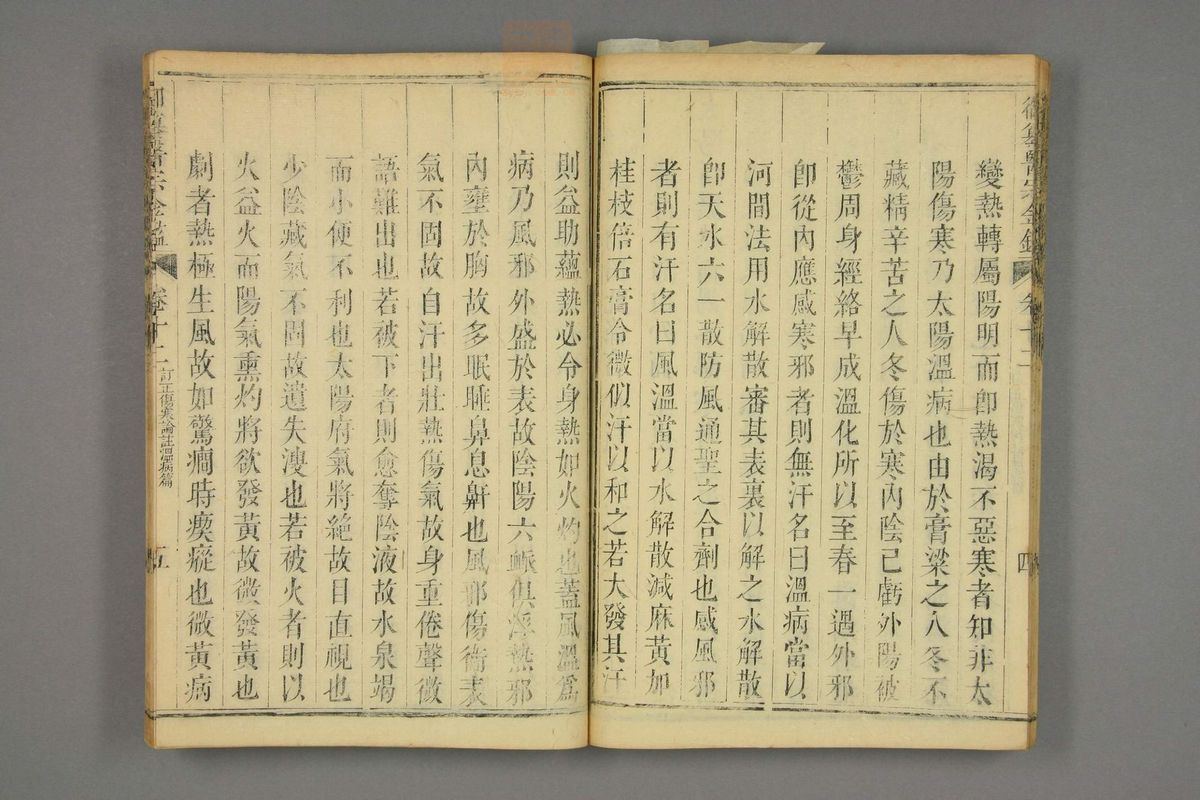 御纂醫宗金鑑 卷十二 四
變熱轉屬陽明而卽熱渴不惡寒者知非太
陽傷寒乃太陽溫病也由於膏粱之人冬不
藏精辛苦之人冬傷於寒內陰已虧外陽被
鬱周身經絡早成溫化所以至春一遇外邪
卽從內應感寒邪者則無汗名曰溫病當以
河間法用水解散審其表裏以解之水解散
卽天水六一散防風通聖之合劑也感風邪
者則有汗名曰風溫當以水解散減麻黃加
桂枝倍石膏令微似汗以和之若大發其汗
則益助蘊熱必令身熱如火灼也蓋風溫爲
病乃風邪外盛於表故陰陽六脈俱浮熱邪
內壅於胸故多眠睡鼻息鼾也風邪傷衛表
氣不固故自汗出壯熱傷氣故身重倦聲微
語難出也若被下者則愈奪陰液故水泉竭
而小便不利也太陽府氣將絕故目直視也
少陰藏氣不固故遺失溲也若被火者則以
火益火而陽氣熏灼將欲發黃故微發黃也
劇者熱極生風故如驚癇時瘈瘲也微黃病
御纂醫宗金鑑 卷十二 訂正傷寒論註溫病篇 五